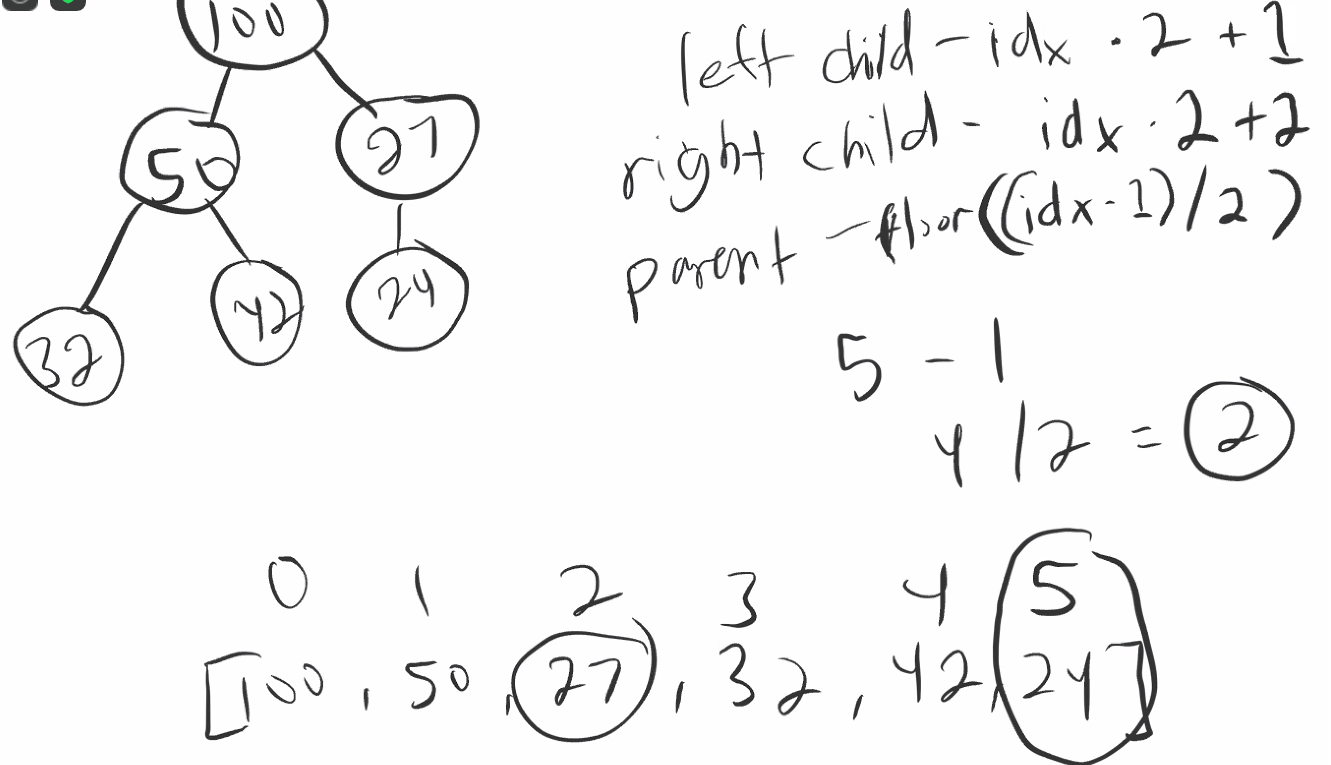 100
50 27
32 42 24
left child - idx · 2 + 1
right child - idx · 2 + 2
parent - floor((idx - 1) / 2)
5 - 1
4 / 2 = 2
0 1 2 3 4 5
[100, 50, 27, 32, 42, 24]